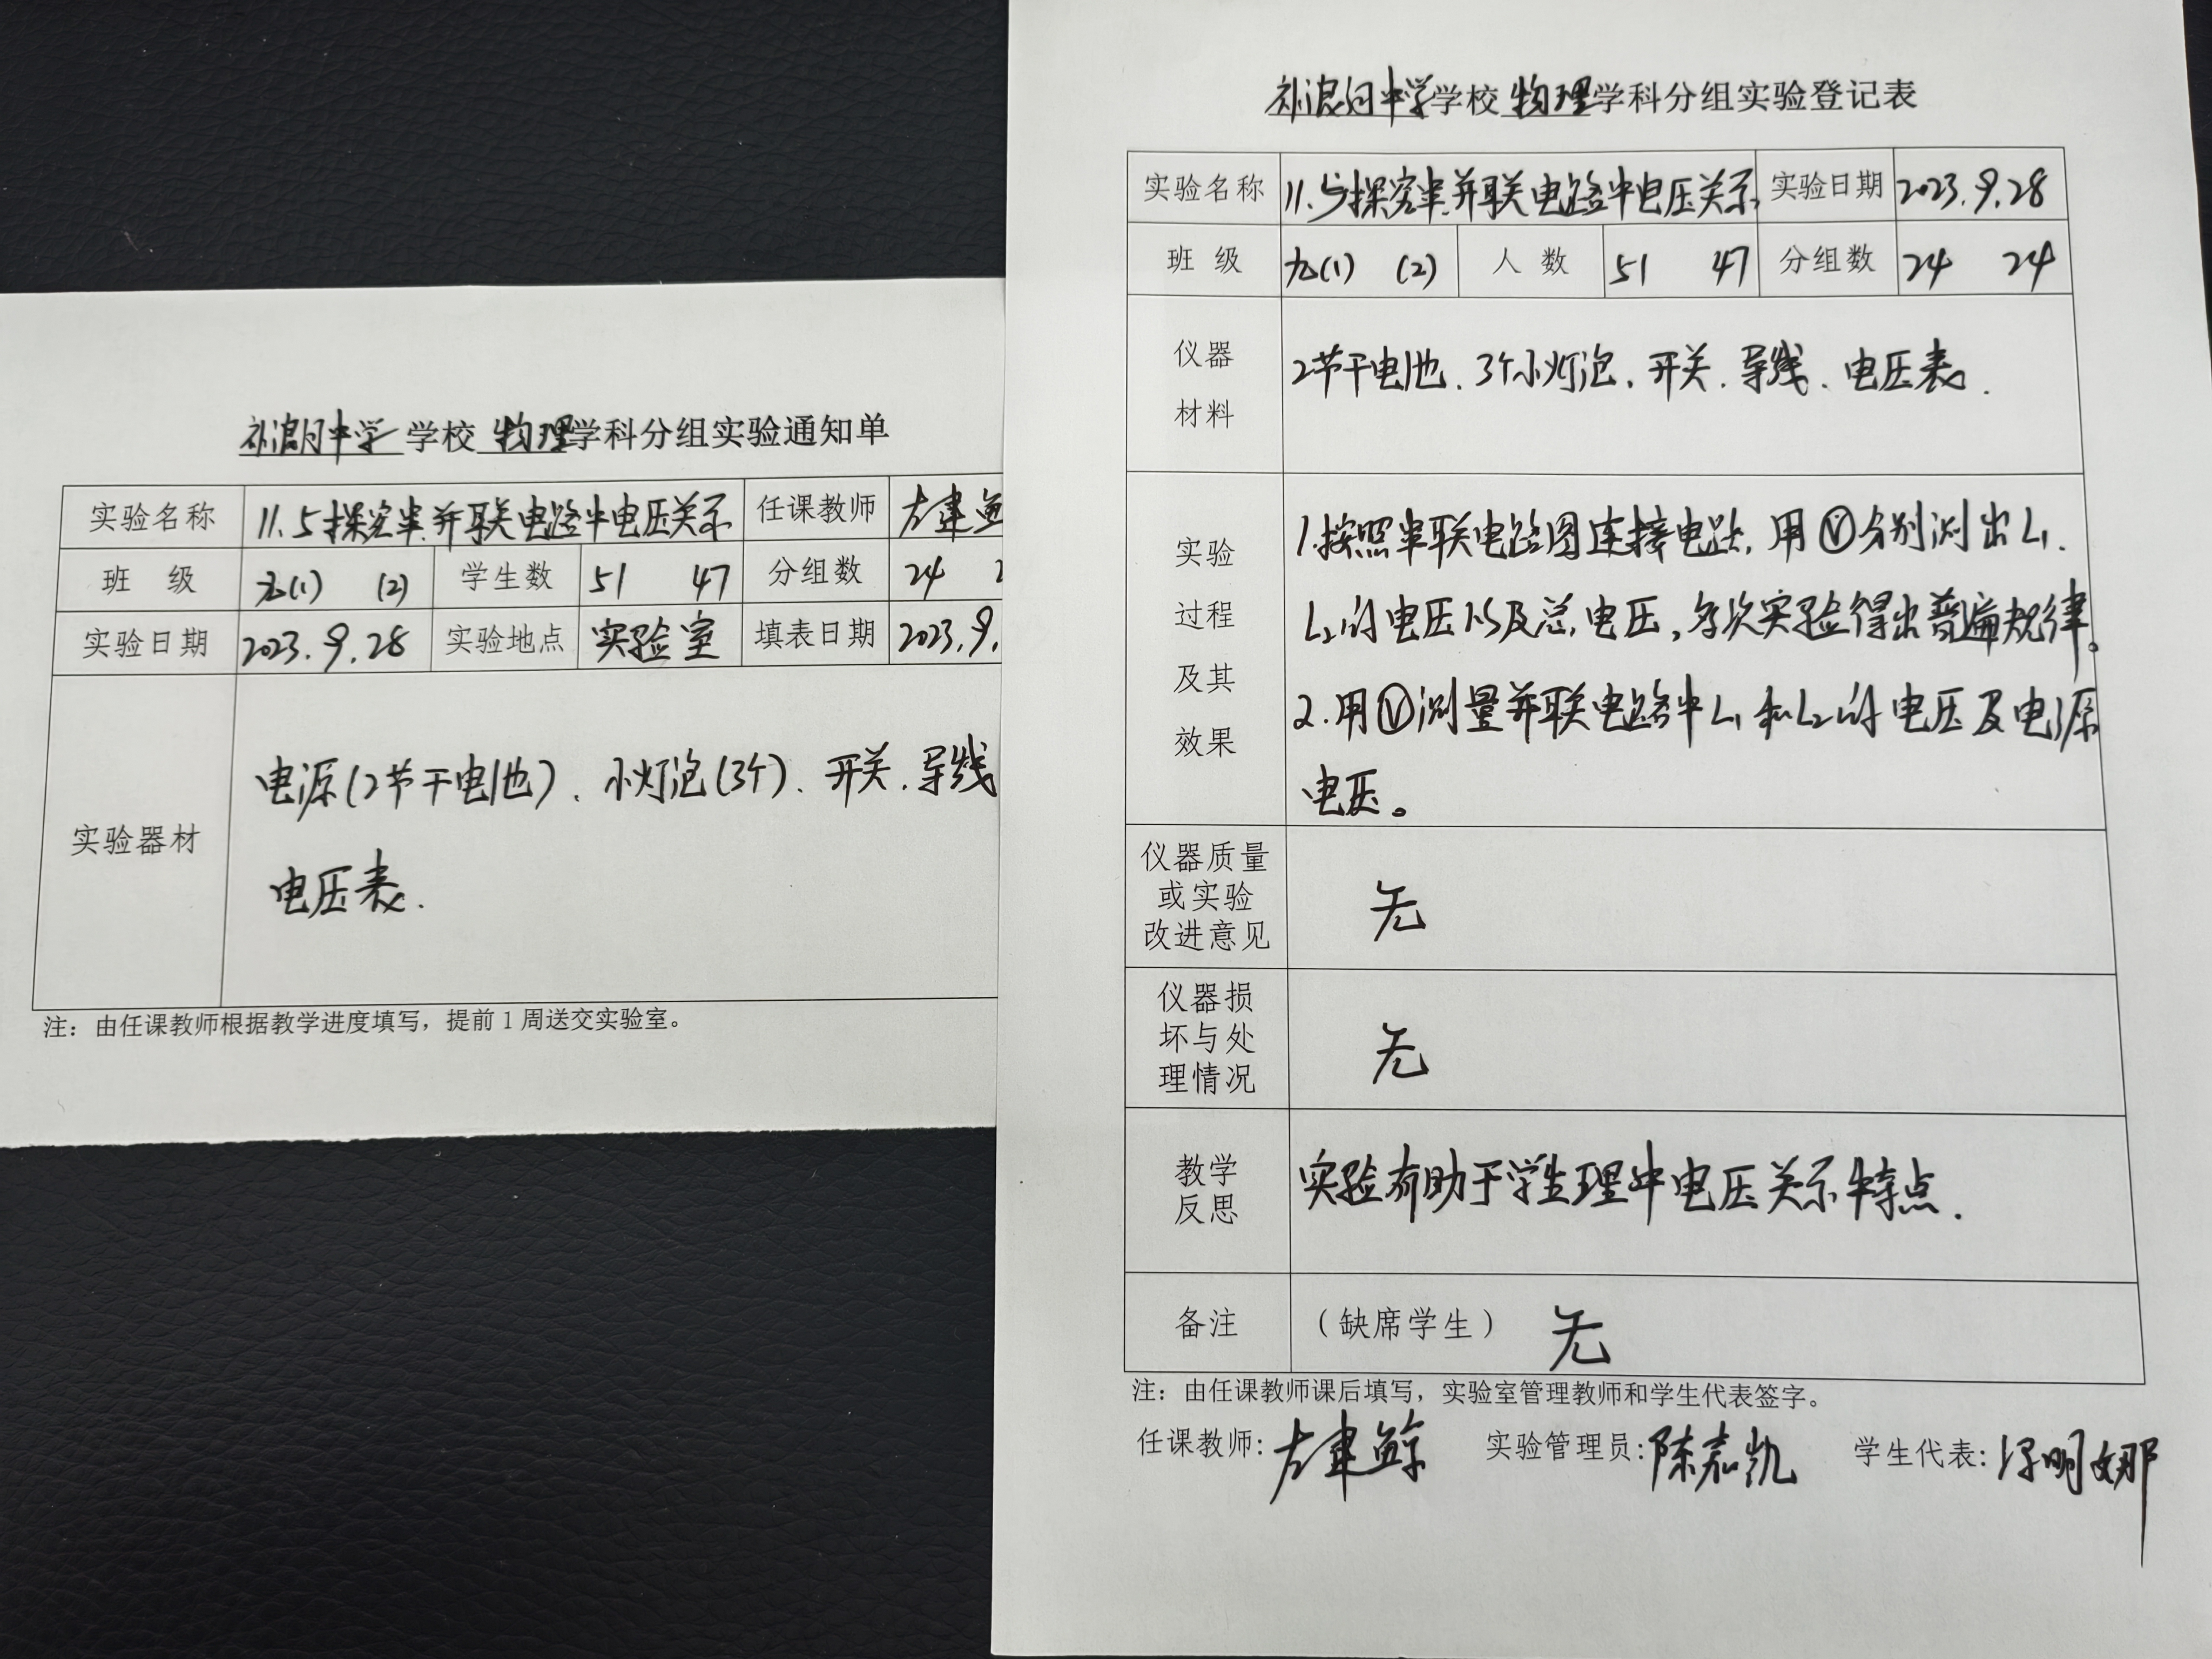 补浪河中学 学校 物理学科分组实验通知单
实验名称 11.5探究串.并联电路中电压关系 任课教师 左建
班 级 九(1) (2) 学生数 51 47 分组数 24
实验日期 2023.9.28 实验地点 实验室 填表日期 2023.9.
实验器材
电源(2节干电池)、小灯泡(3个)、开关.导线
电压表.
注：由任课教师根据教学进度填写，提前1周送交实验室。
补浪河中学学校 物理学科分组实验登记表
实验名称 11.5探究串.并联电路中电压关系 实验日期 2023.9.28
班 级 九(1) (2) 人 数 51 47 分组数 24 24
仪器
材料
2节干电池.3个小灯泡.开关.导线.电压表.
实验
过程
及其
效果
1.按照串联电路图连接电路,用Ⓥ分别测出L₁.
L₂的电压以及总电压,多次实验得出普遍规律。
2.用Ⓥ测量并联电路中L₁和L₂的电压及电源
电压。
仪器质量
或实验
改进意见
无
仪器损
坏与处
理情况
无
教学
反思
实验有助于学生理中电压关系特点.
备注 （缺席学生） 无
注：由任课教师课后填写，实验室管理教师和学生代表签字。
任课教师: 左建 实验管理员: 陈嘉凯 学生代表: 明娜